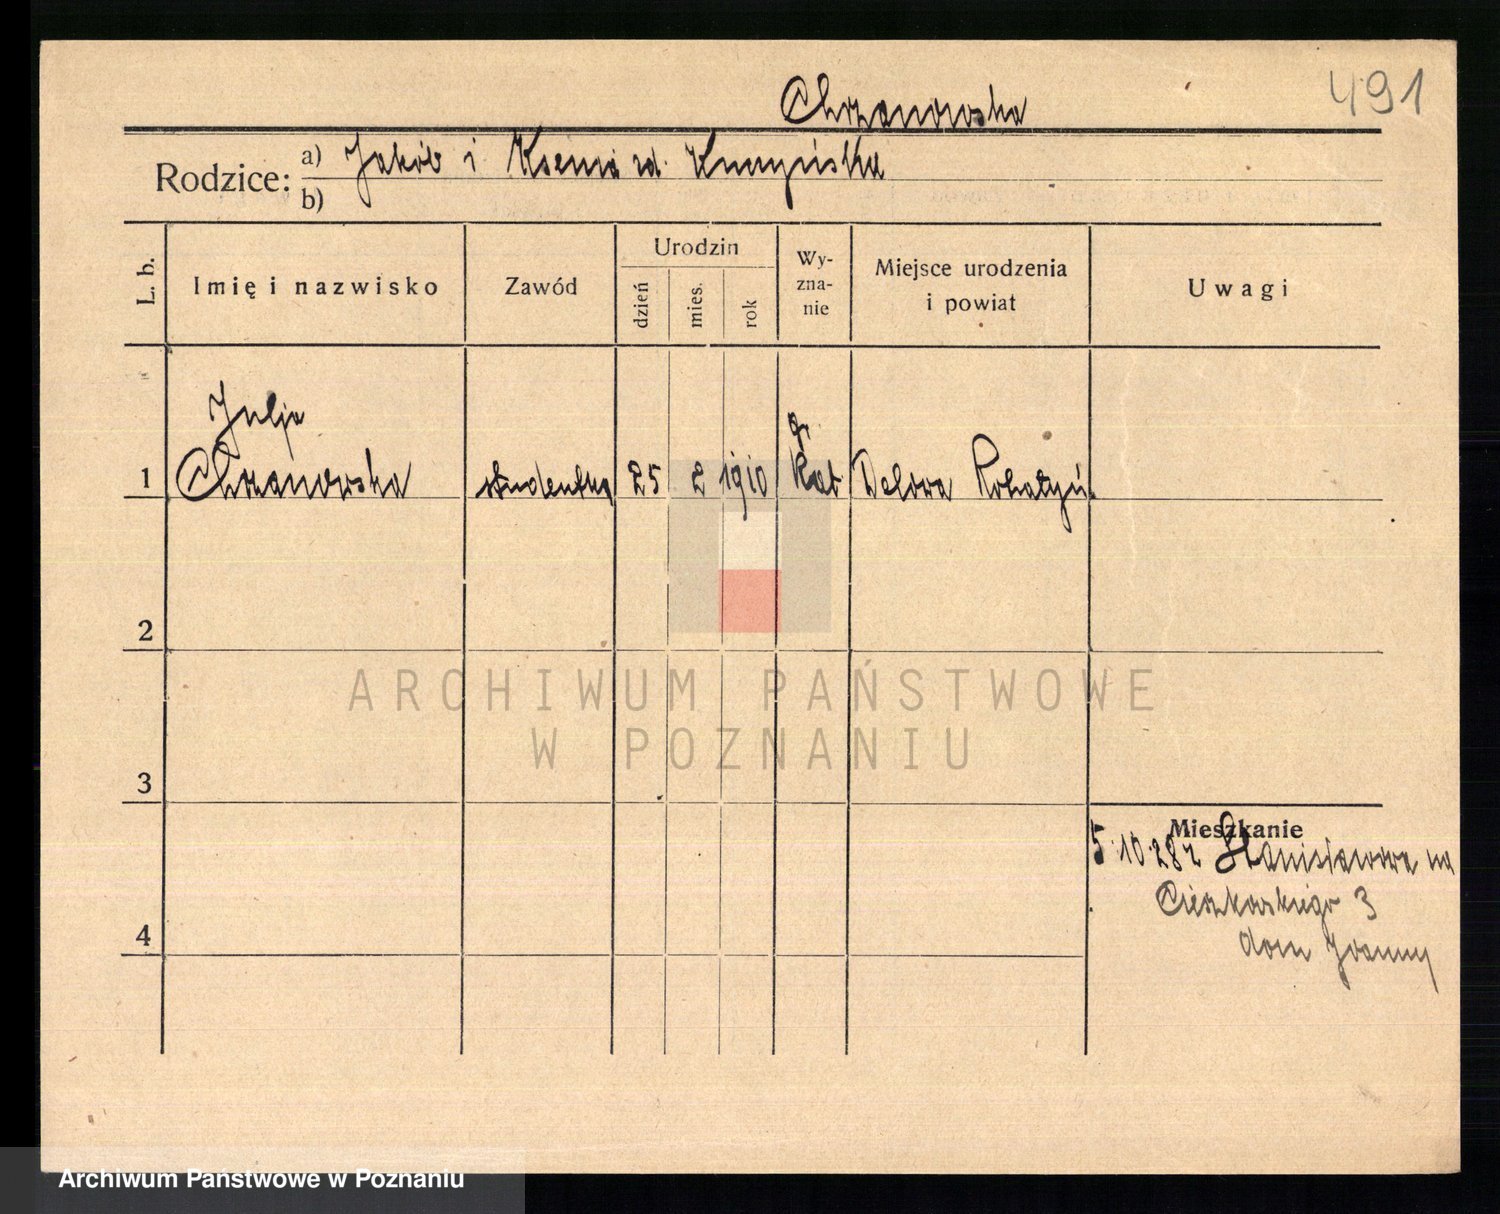 491
Chrzanowska
Rodzice: a) Jakób i Ksenia zd. Knazyńska
b)
L. b.
Imię i nazwisko
Zawód
Urodzin
dzień
mies.
rok
Wy-
zna-
nie
Miejsce urodzenia
i powiat
Uwagi
Julja
gr
1 Chrzanowska studentka 25 2 1910 Kat Delowa Rohatyń
2
3
4
Mieszkanie
5.10.28 z Stanisławowa na
Cieszkowskiego 3
dom Joanny
ARCHIWUM PAŃSTWOWE
W POZNANIU
Archiwum Państwowe w Poznaniu